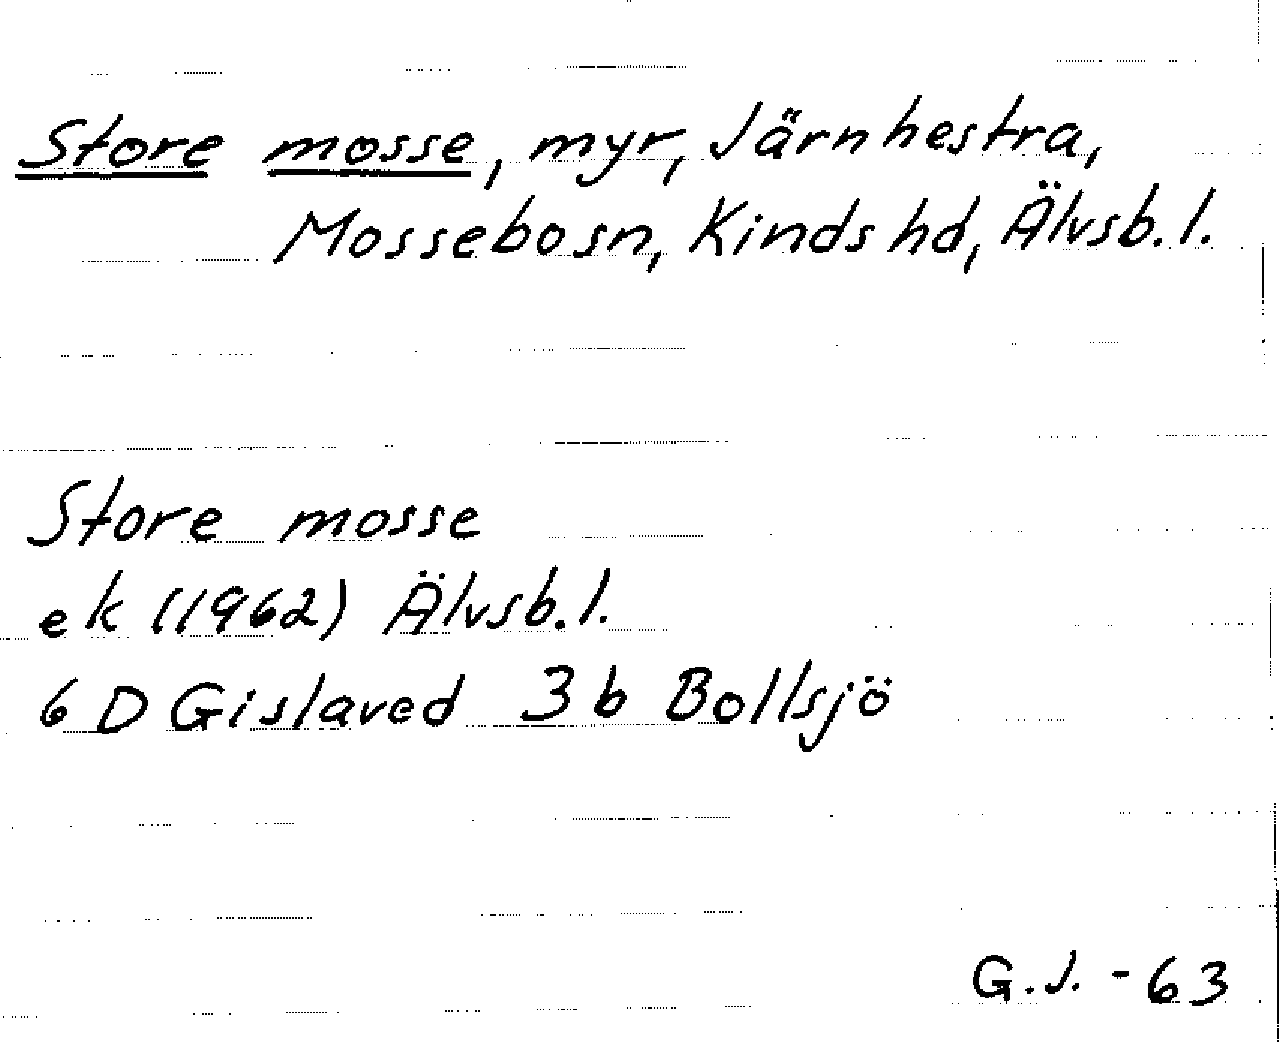 Store mosse, myr, Järnhestra,
Mossebosn, Kinds hd, Älvsb. l.
Store mosse
ek (1962) Älvsb. l.
6 D Gislaved 3 b Bollsjö
G. J. - 63